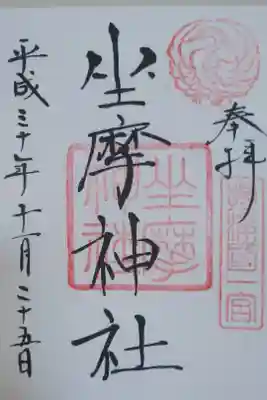 奉拝
坐摩神社
坐摩
神社
平成三十年十一月二十五日